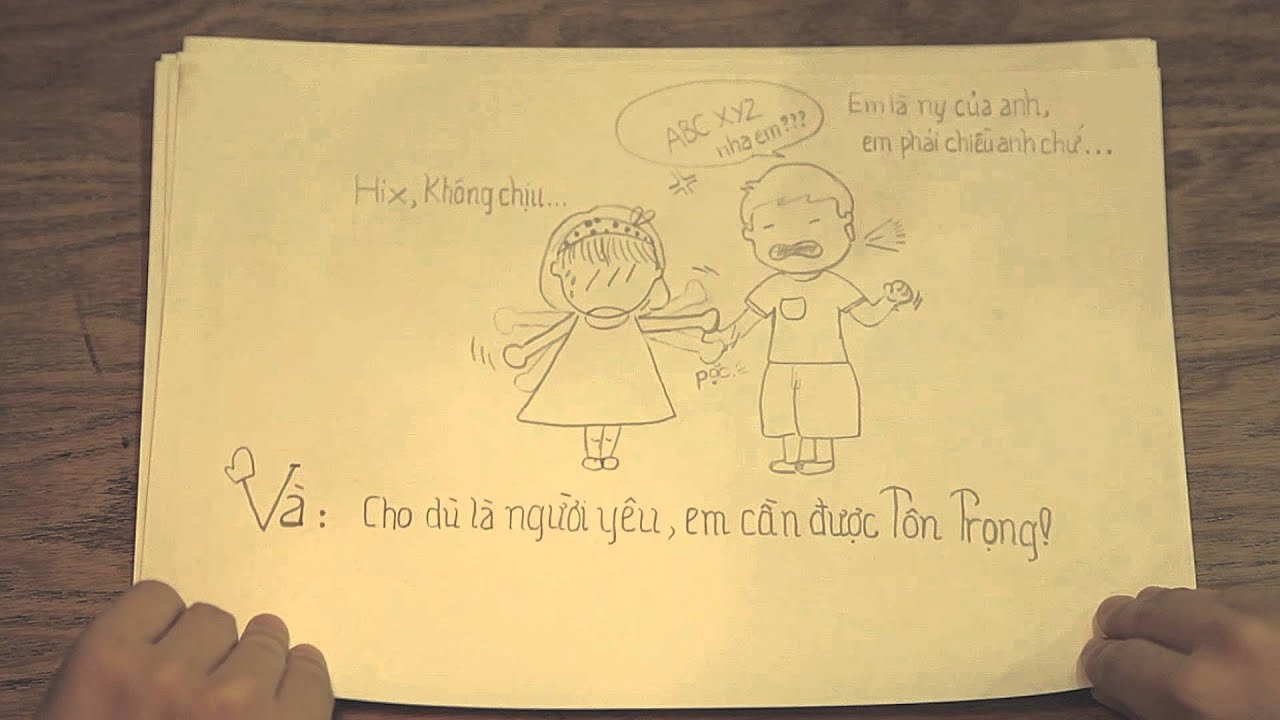 ABC XYZ
nha em???
Em là ny của anh,
em phải chiều anh chứ...
Hix, Không chịu...
pặc.
Và: Cho dù là người yêu, em cần được Tôn Trọng!